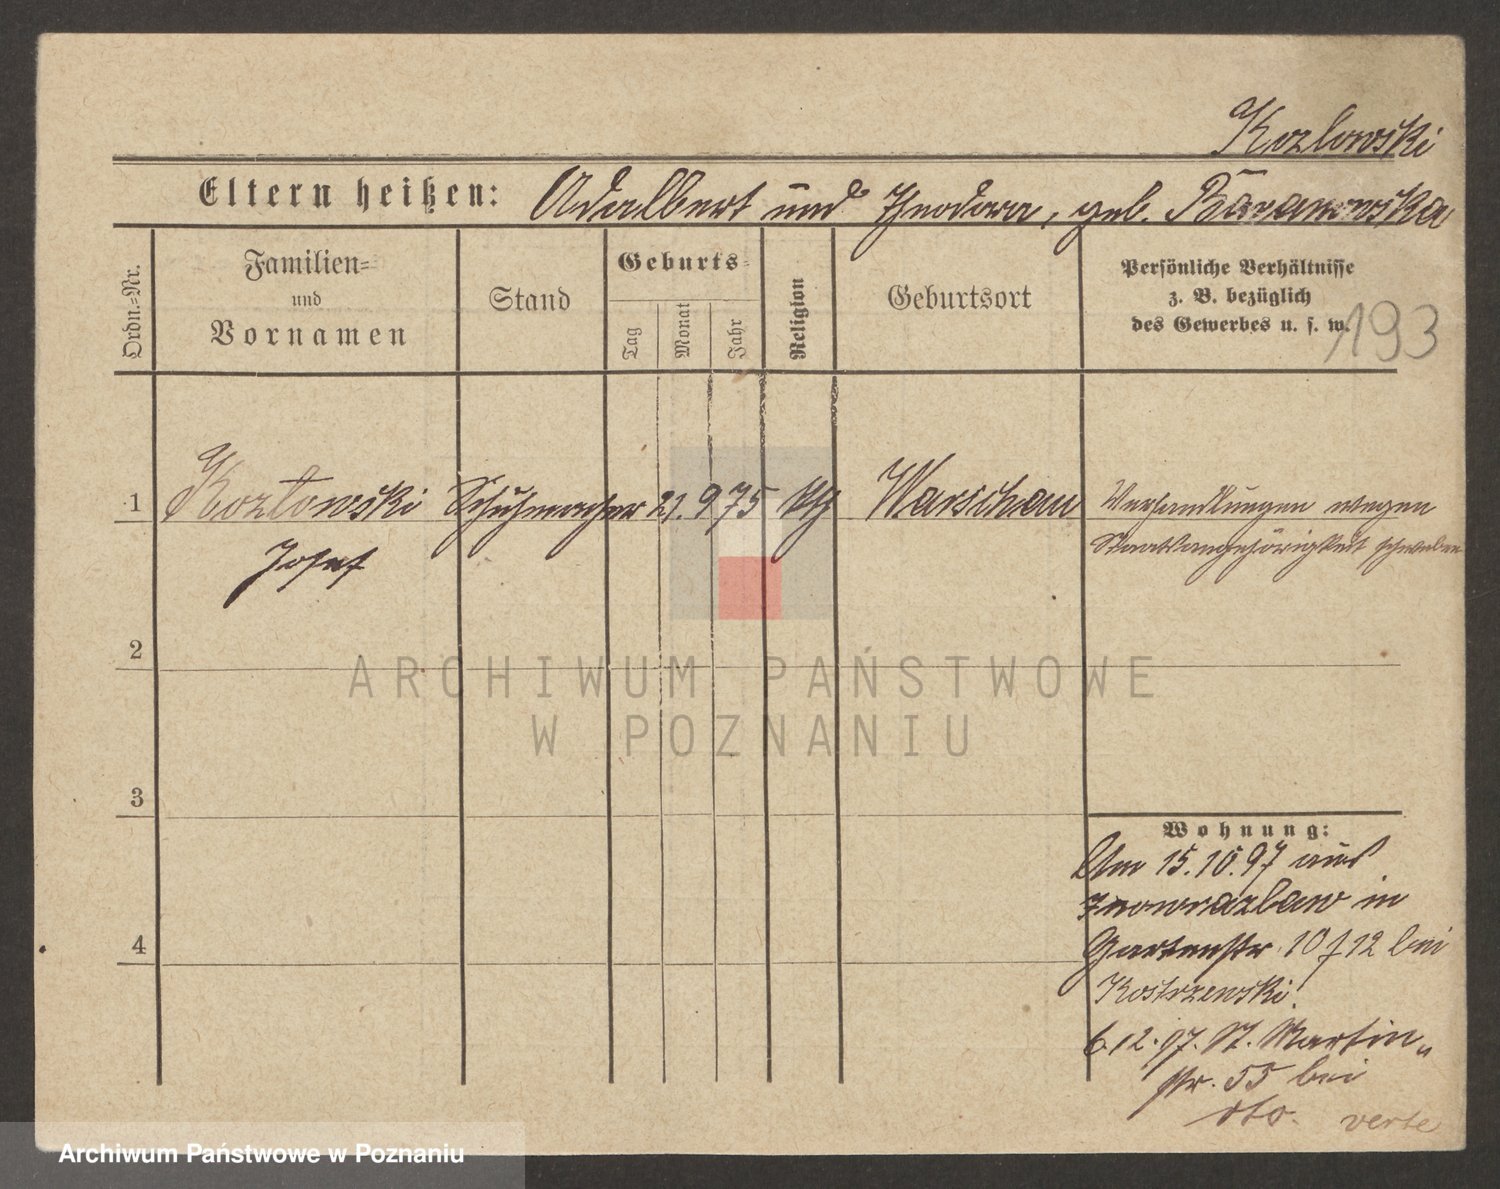 Kozlowski
Eltern heißen: Adalbert und Theodora, geb. Baranowska
Ordn.=Nr.
Familien=
und
Vornamen
Stand
Geburts=
Tag
Monat
Jahr
Religion
Geburtsort
Persönliche Verhältnisse
z. B. bezüglich
des Gewerbes u. s. w.
193
1 Kozłowski Schuhmacher 21. 9 75 kth Warschau Verhandlungen wegen
Josef
Staatsangehörigkeit schweben
2
ARCHIWUM PAŃSTWOWE
W POZNANIU
3
Wohnung:
Am 15.10.97 aus
Inowrazlaw in
4
Gartenstr. 10 f 12 bei
Kostrzewski.
6.12.97. St. Martin„
str. 55 bei
dto. verte
Archiwum Państwowe w Poznaniu